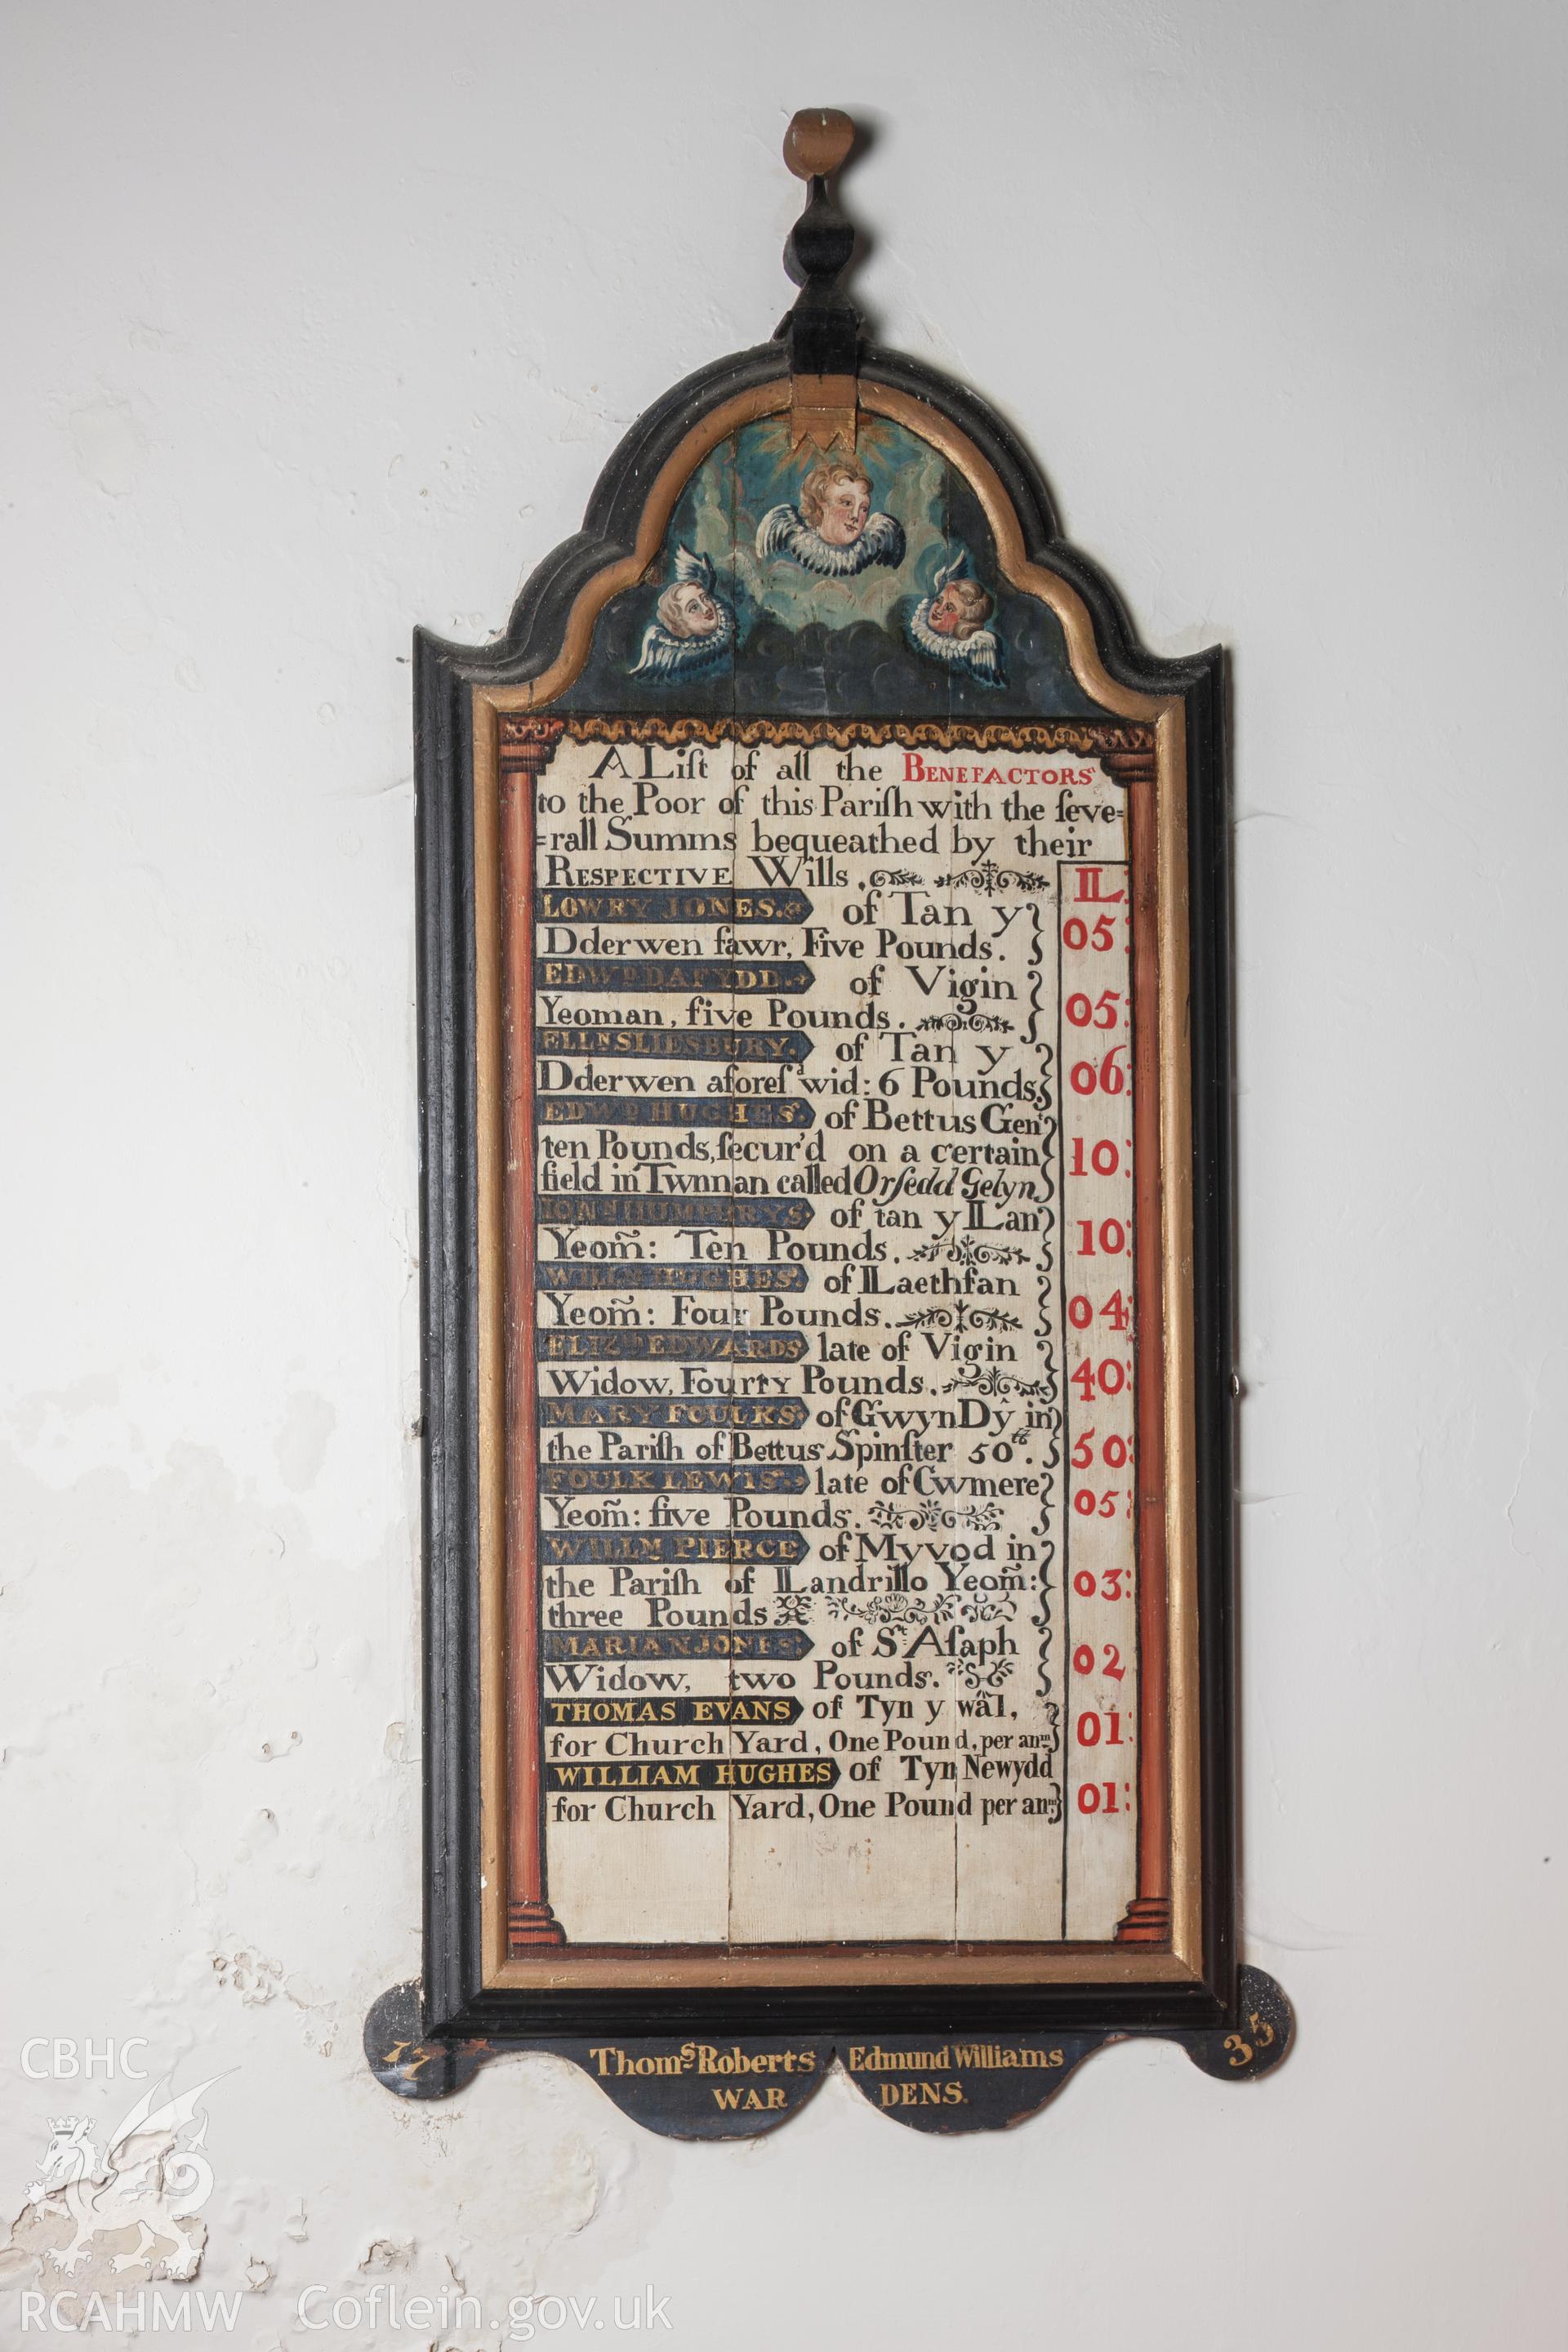 A Liſt of all the BENEFACTORS
to the Poor of this Pariſh with the ſeve=
=rall Summs bequeathed by their
RESPECTIVE Wills.
LL
LOWRY JONES. of Tan y
Dderwen fawr, Five Pounds. 05:
EDWD DAFYDD. of Vigin
Yeoman, five Pounds. 05:
ELLIN SLIESBURY. of Tan y
Dderwen aforeſd wid: 6 Pounds. 06:
EDWD HUGHES. of Bettus Gent
ten Pounds, ſecur'd on a certain 10:
field in Twnnan called Orſedd Gelyn
HUMPHRYS. of tan y LLan
Yeom̃: Ten Pounds. 10:
WILLM HUGHES. of LLaethfan
Yeom̃: Four Pounds. 04:
ELIZth EDWARDS late of Vigin
Widow, Fourty Pounds. 40:
MARY FOULKS: of Gwyn Dŷ in
the Pariſh of Bettus Spinſter 50tt. 50:
FOULK LEWIS. late of Cwmere
Yeom̃: five Pounds. 05:
WILLM PIERCE of Myvod in
the Pariſh of LLandrillo Yeom̃: 03:
three Pounds
MARIAN JONES: of St Aſaph
Widow, two Pounds. 02
THOMAS EVANS of Tyn y wâl,
for Church Yard, One Pound, per anm 01:
WILLIAM HUGHES of Tyn Newydd
for Church Yard, One Pound per anm 01:
17 35
Thoms Roberts Edmund Williams
WAR DENS.
CBHC
RCAHMW Coflein.gov.uk